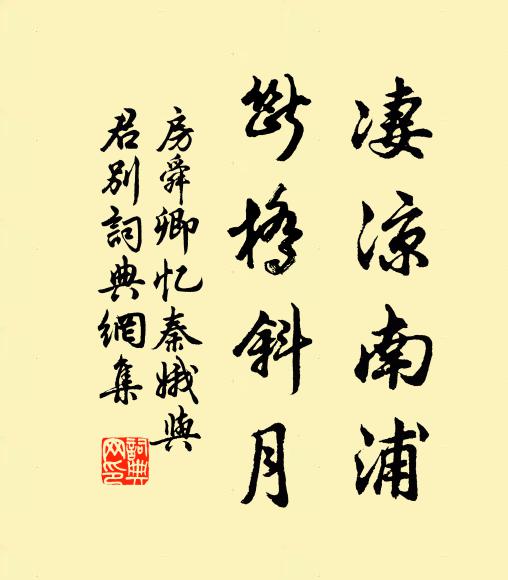 凄凉南浦
断橋斜月
房舜卿忆秦娥與
君别詞典網集
詞典
网印